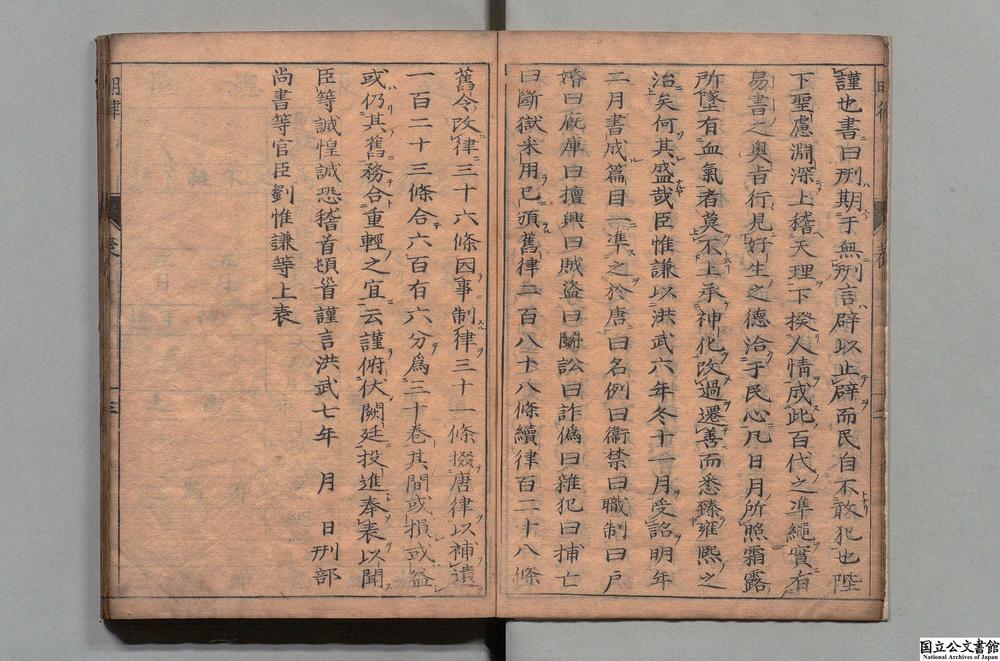 謹也書曰刑期于無刑言辟以止辟而民自不敢犯也陛
下聖慮淵深上稽天理下揆人情成此百代之準繩實有
易書之奥旨行見好生之德洽于民心凡日月所照霜露
所墜有血氣者莫不上承神化改過遷善而悉臻雍熙之
治矣何其盛哉臣惟謙以洪武六年冬十一月受詔明年
二月書成篇目一準之於唐曰名例曰衞禁曰職制曰戸
婚曰厩庫曰擅興曰賊盗曰鬭訟曰詐僞曰雜犯曰捕亡
曰斷獄采用已頒舊律二百八十八條續律百二十八條
舊令改律三十六條因事制律三十一條掇唐律以補遺
一百二十三條合六百有六分爲三十卷其間或損或益
或仍其舊務合重輕之宜云謹俯伏闕廷投進奉表以聞
臣等誠惶誠恐稽首頓首謹言洪武七年 月 日刑部
尚書等官臣劉惟謙等上表
明律 表 三
国立公文書館
National Archives of Japan